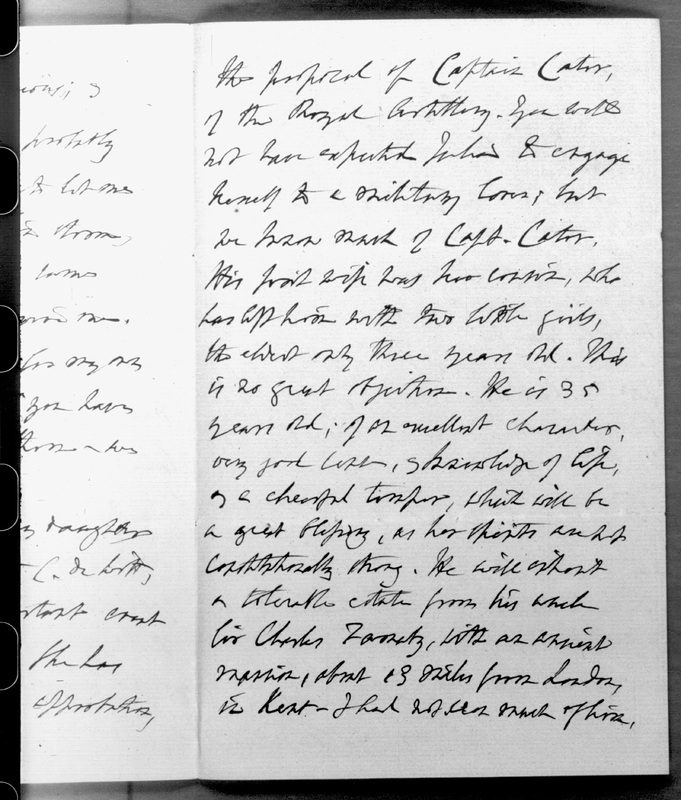 probably
to let me
in stormy
me.
for my own
you have
daughters
C. de Witt,
event
she has
approbation,
the proposal of Captain Cator,
of the Royal Artillery. You will
not have expected Julia to engage
herself to a military lover; but
we know much of Capt. Cator.
His first wife was her cousin, who
has left him with two little girls,
the eldest only three years old. This
is no great objection. He is 35
years old; of an excellent character,
very good sense, & knowledge of life,
& a cheerful temper, which will be
a great blessing, as her spirits are not
constitutionally strong. He will inherit
a tolerable estate from his uncle
Sir Charles with an ancient
mansion, about 13 miles from London,
in Kent - I had not seen much of him,